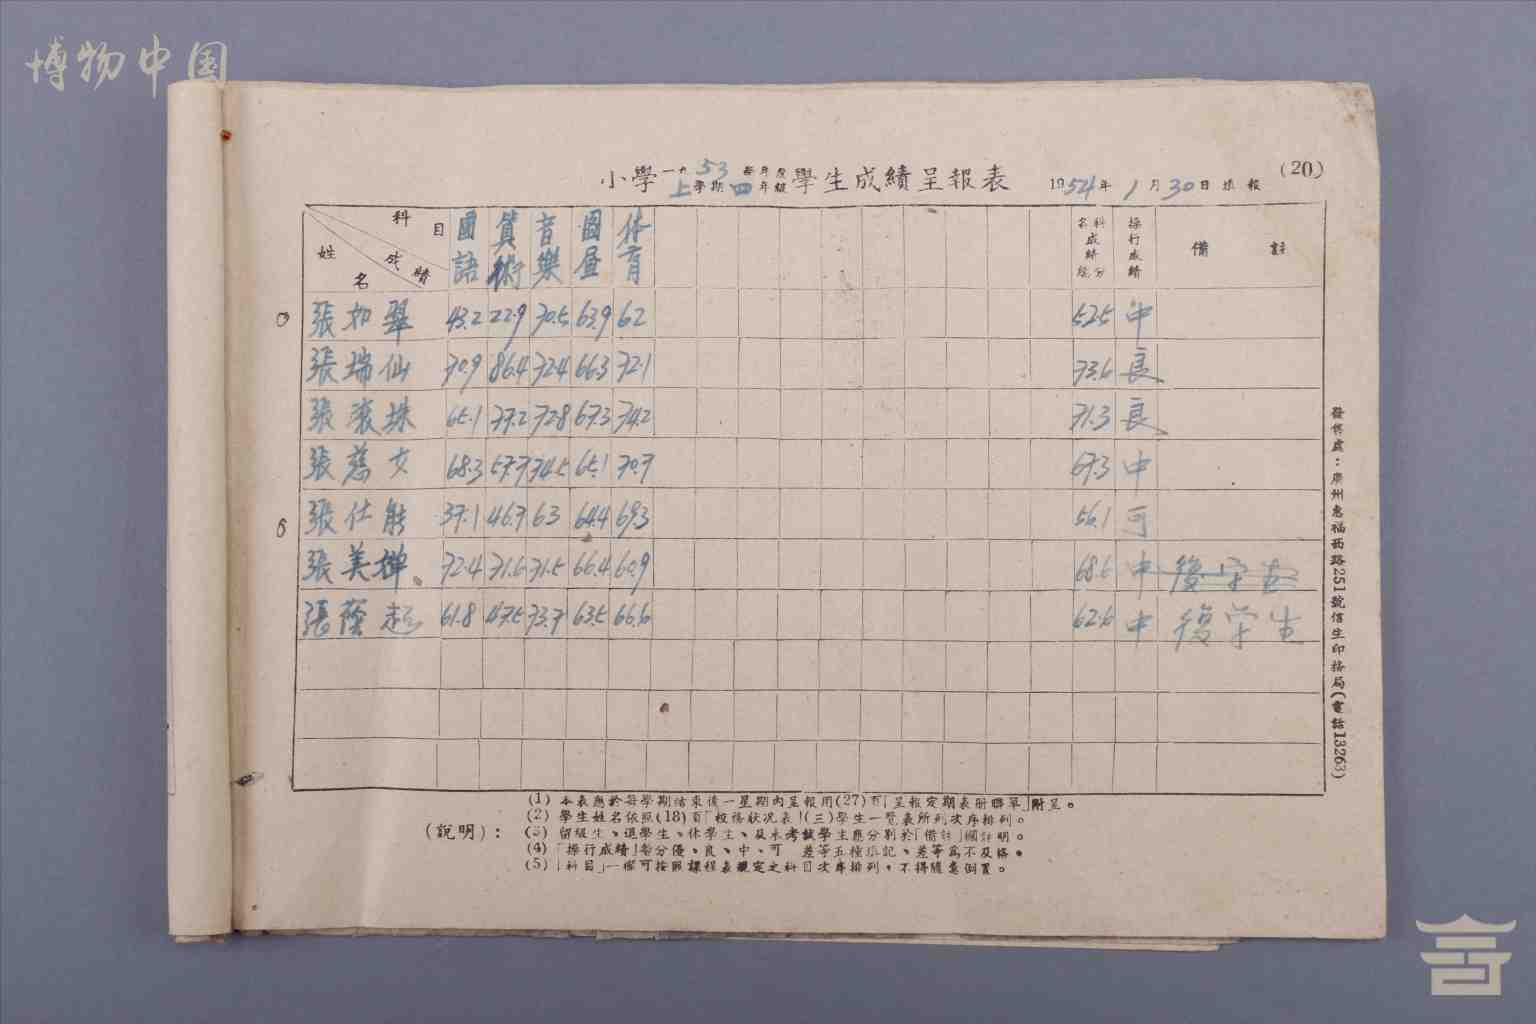 博物中国
(20)
小學一九53每年度上學期四年級學生成績呈報表 1954年1月30日填報
科目 成績 姓名 國語 算術 音樂 圖畫 体育 各科成績總分 操行成績 備註
張如翠 43.2 22.9 70.5 63.9 62 52.5 中
張瑞仙 70.9 86.4 72.4 66.3 72.1 73.6 良
張滚珠 65.1 77.2 72.8 67.3 74.2 71.3 良
張慈女 68.3 57.7 74.5 65.1 70.7 67.3 中
張仕能 37.1 46.7 63 64.4 69.3 56.1 可
張美嬋 72.4 71.6 71.5 66.4 60.9 68.6 中 復学生
張蔭超 61.8 47.5 73.7 63.5 66.6 62.6 中 復学生
發售處:廣州惠福西路251號信生印務局(電話13263)
(說明):
(1) 本表應於每學期結束後一星期內呈報用(27)頁「呈報定期表册聯單」附呈。
(2) 學生姓名依照(18)頁「校務狀况表」(三)學生一覽表所列次序排列。
(3) 留級生、退學生、休學生、及未考試學生應分别於「備註」欄註明。
(4) 「操行成績」暫分優、良、中、可 差等五種填記、差等爲不及格。
(5) 「科目」一欄可按照課程表規定之科目次序排列,不得隨意倒置。